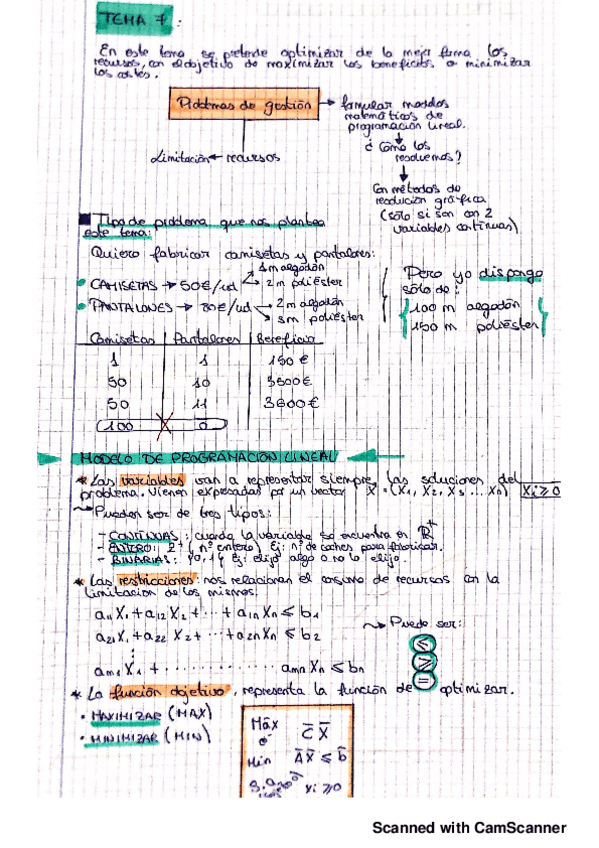 TEMA 7:
En este tema se pretende optimizar de la mejor forma los
recursos, con el objetivo de maximizar los beneficios o minimizar
los costes.
Problemas de gestión → formular modelos
matemáticos de
programación lineal.
¿Cómo los
resolvemos?
Limitación ← recursos
Con métodos de
resolución gráfica
(sólo si son con 2
variables continuas)
Tipo de problema que nos plantea
este tema:
Quiero fabricar camisetas y pantalones:
• CAMISETAS → 50€/ud
1m algodón
2m poliéster
• PANTALONES → 80€/ud
2m algodón
3m poliéster
Pero yo dispongo
sólo de:
100 m algodón
150 m poliéster
Camisetas | Pantalones | Beneficio
1 1 130 €
50 10 3300€
50 11
100 0
MODELO DE PROGRAMACIÓN LINEAL
* Las variables van a representar siempre las soluciones del
problema. Vienen expresadas por un vector X = (X1, X2, X3 ... Xn) Xi ≥ 0
Pueden ser de tres tipos:
- CONTINUAS: cuando la variable se encuentra en R+
- ENTERO: Z+ (nº entero) Ej: nº de coches para fabricar.
- BINARIAS: {0,1} Ej: elijo algo o no lo elijo.
* Las restricciones: nos relacionan el consumo de recursos con la
limitación de los mismos.
a11 X1 + a12 X2 + ... + a1n Xn ≤ b1
a21 X1 + a22 X2 + ... + a2n Xn ≤ b2
Puede ser:
≤
≥
=
am1 X1 + ............ amn Xn ≤ bn
* La función objetivo, representa la función de optimizar.
• MAXIMIZAR (MAX)
• MINIMIZAR (MIN)
Máx
o
Min
C X
A X ≤ b
s.a
xi ≥ 0
Scanned with CamScanner